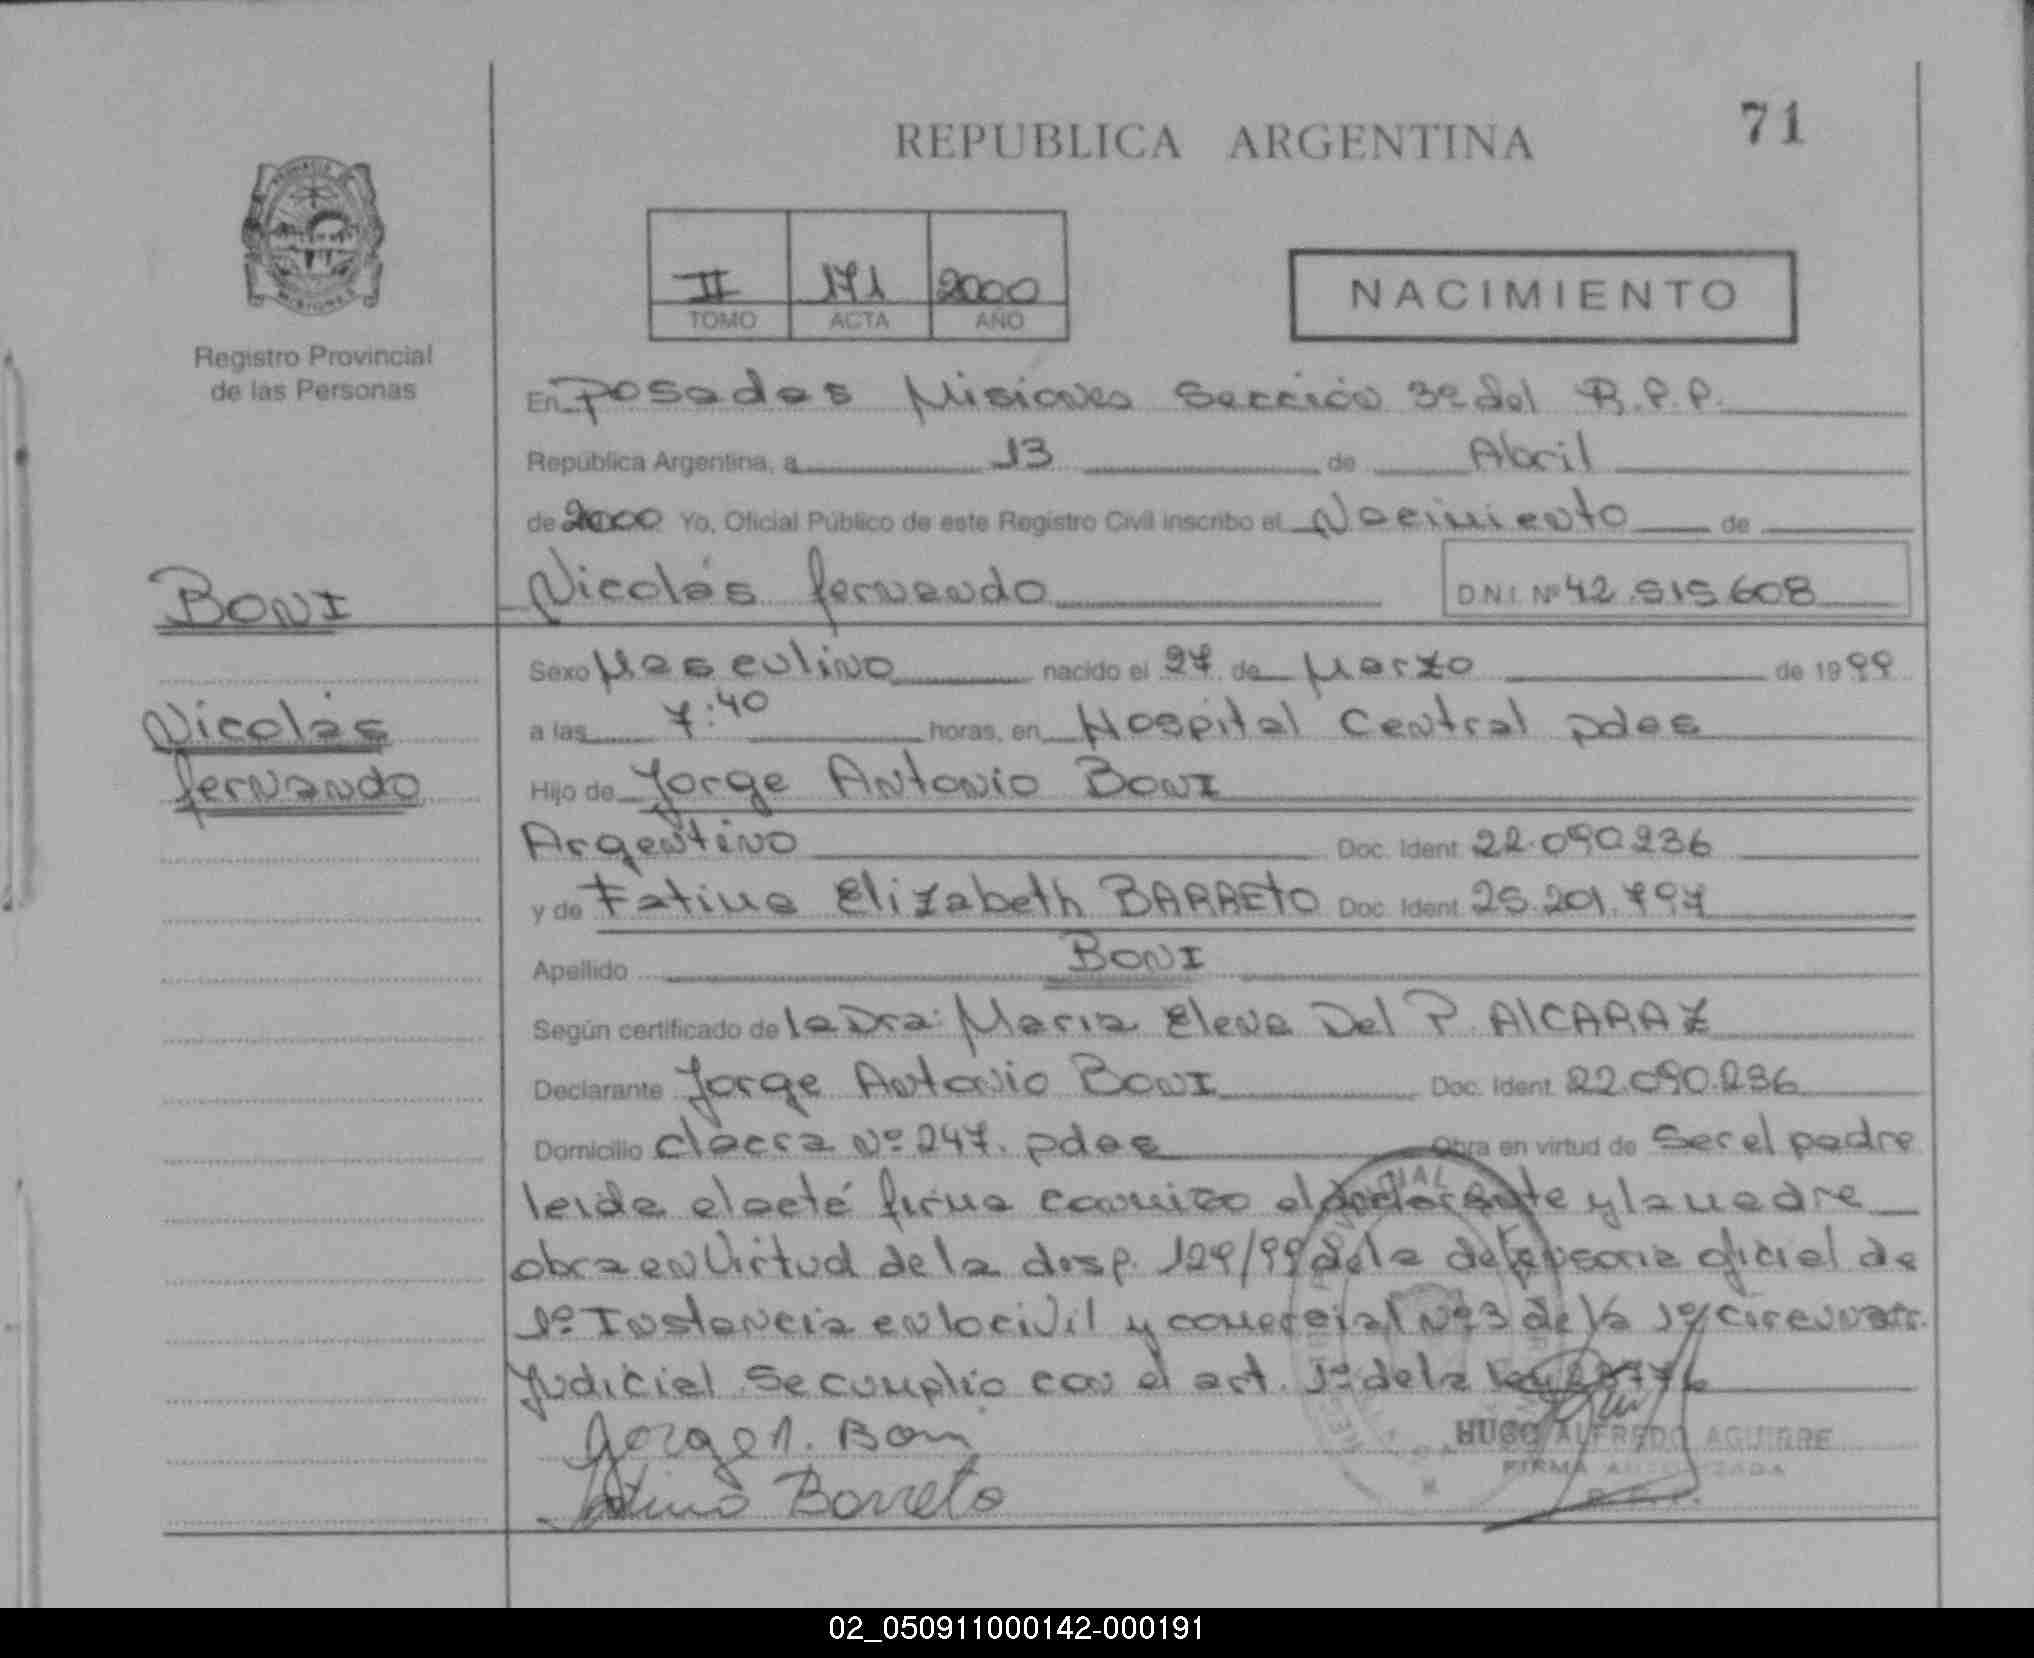 REPUBLICA ARGENTINA
71
II 171 2000
TOMO ACTA AÑO
NACIMIENTO
Registro Provincial
de las Personas
En Posadas Misiones Sección 3º del R.P.P.
República Argentina, a 13 de Abril
de 2000 Yo, Oficial Público de este Registro Civil inscribo el Nacimiento de
BONI
Nicolás fernando
D.N.I. Nº 42.515.608
Sexo Masculino nacido el 27 de Marzo de 1999
Nicolás
a las 7:40 horas, en Hospital Central pdas
fernando
Hijo de Jorge Antonio BONI
Argentino Doc. Ident. 22.090.236
y de Fatima Elizabeth BARRETO Doc. Ident. 25.201.797
Apellido BONI
Según certificado de la Dra: Maria Elena Del P. AlCARAZ
Declarante Jorge Antonio BONI Doc. Ident. 22.090.236
Domicilio chacra Nº 247. pdas Obra en virtud de Ser el padre
leida el acta firma conmigo el declarante y la madre
obra en Virtud de la disp. 129/99 de la defensoria oficial de
1º Instancia en lo civil y comercial Nº 3 de la 1º circunscr.
Judicial Se cumplio con el art. 1º de la ley
Jorge A. Boni
Fatima Barreto
HUGO ALFREDO AGUIRRE
FIRMA AUTORIZADA
R.P.P.
02_050911000142-000191